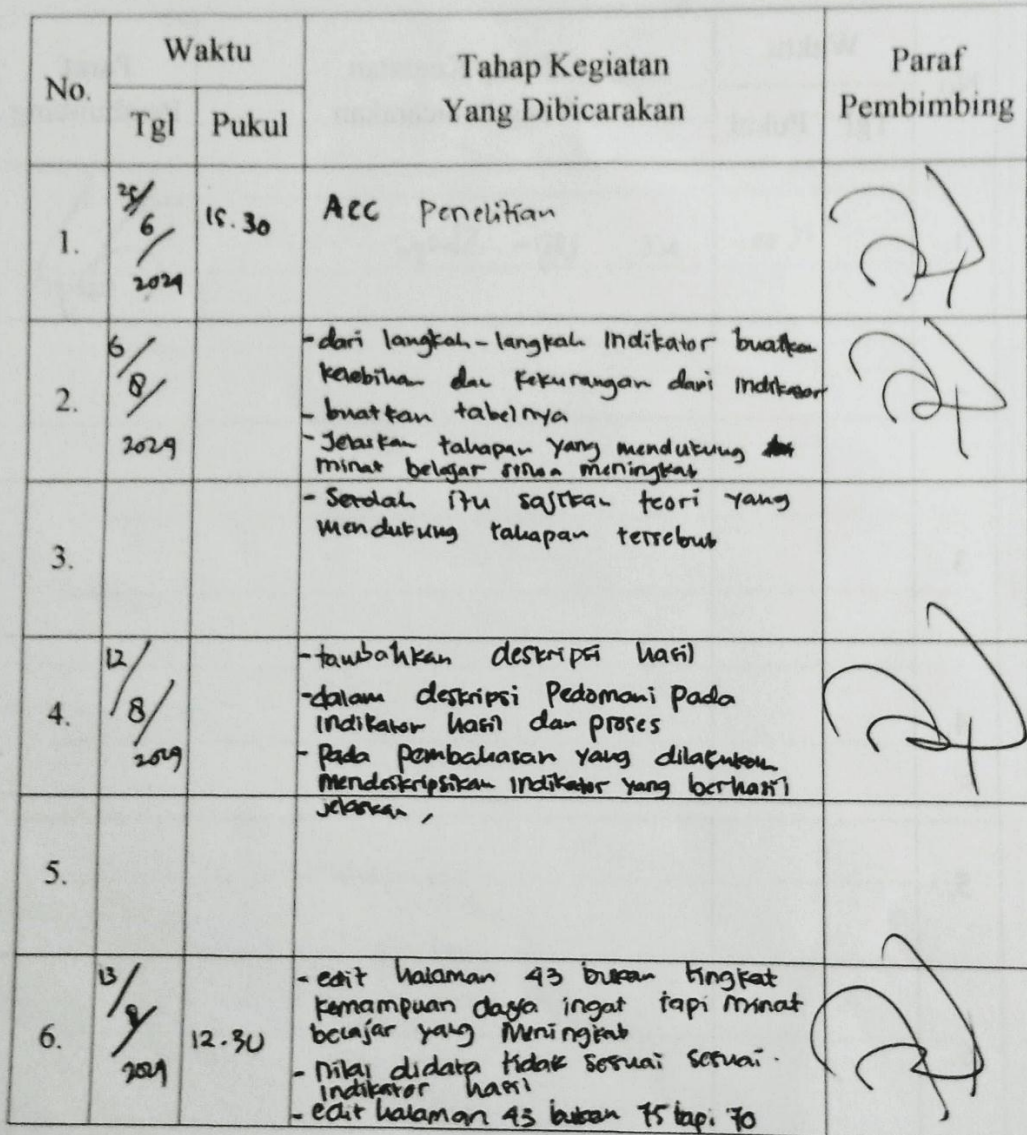 No.
Waktu
Tgl
Pukul
Tahap Kegiatan
Yang Dibicarakan
Paraf
Pembimbing
1.
25/
6/
2024
15.30
Acc Penelitian
2.
6/
8/
2024
- dari langkah-langkah Indikator buatkan
kelebihan dan kekurangan dari Indikator
- buatkan tabelnya
- Jelaskan tahapan yang mendukung
minat belajar siswa meningkat
3.
- Setelah itu sajikan teori yang
mendukung tahapan tersebut
4.
12/
8/
2024
- tambahkan deskripsi hasil
- dalam deskripsi Pedomani Pada
indikator hasil dan proses
- Pada pembahasan yang dilakukan
mendeskripsikan Indikator yang berhasil
jelaskan,
5.
6.
13/
2024
12.30
- edit halaman 43 bukan tingkat
kemampuan daya ingat tapi minat
belajar yang Meningkat
- nilai didata tidak sesuai sesuai.
indikator hasil
- edit halaman 43 bukan 75 tapi 70